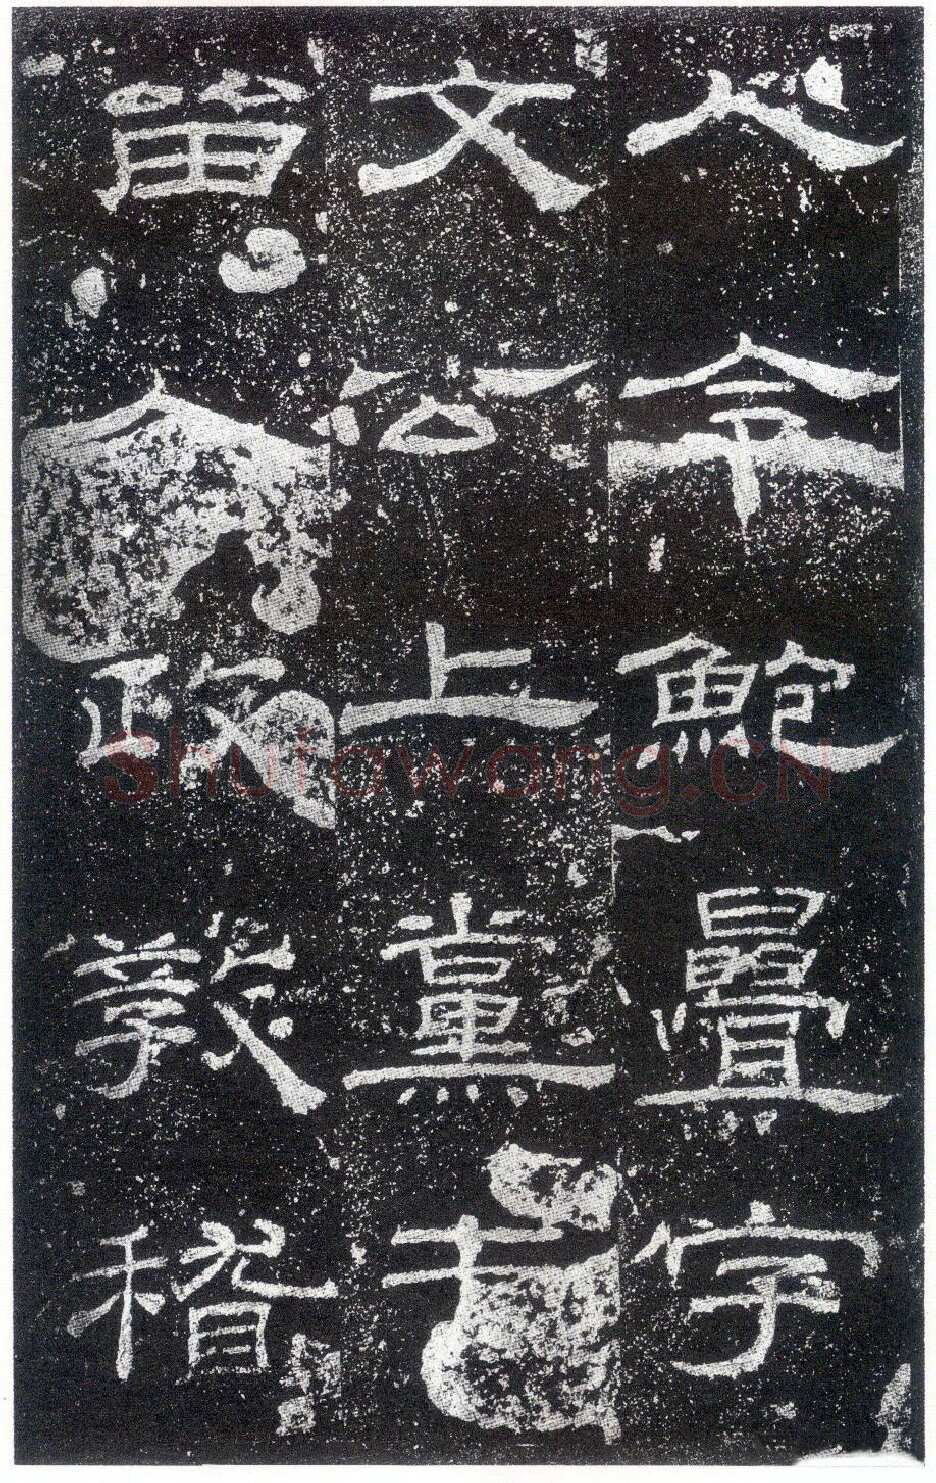 人令鮑疊字
文公上黨屯
留人政教稽
Shufawang.CN